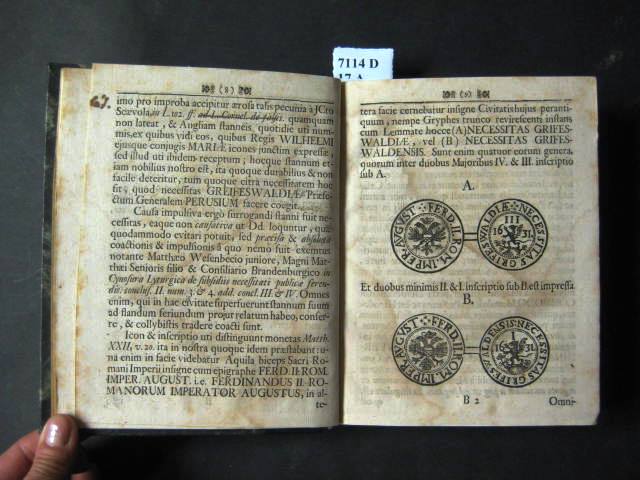 7114 D
17 A
67.
(8)
imo pro improba accipitur ærosa talis pecunia à JCto
Scævola, in L. 102. ff. ad L. Cornel. de falsis. quamquam
non lateat, & Angliam stanneis, quotidie uti num-
mis, ex quibus vidi eos, quibus Regis WILHELMI
ejusque conjugis MARIÆ icones junctim expressæ,
sed illud uti ibidem receptum; hocque stannum et-
iam nobilius nostro est, ita quoque durabilius & non
facile deteritur, tum quoque citra necessitatem hoc
fit, quod necessitas GREIFESWALDIÆ Præfe-
ctum Generalem PERUSIUM facere coegit.
Causa impulsiva ergò surrogandi stanni fuit ne-
cessitas, eaque non causativa ut Dd. loquuntur, quæ
quodammodo evitari potuit, sed præcisa & absoluta
coactionis & impulsionis à quo nemo fuit exemtus
notante Matthæo Wesenbecio juniore, Magni Mat-
thæi Senioris filio & Consiliario Brandenburgico in
Cynosura Lyturgica de subsidiis necessitatis publicæ feren-
dis. conclus. II. num. 3. & 4. add. concl. III. & IV. Omnes
enim, qui in hac civitate superfuerunt stannum suum
ad flandum feriundum projer relatum habeo, confer-
re, & collybistis tradere coacti sunt.
Icon & inscriptio uti distinguunt monetas Matth.
XXII, v. 20. ita in nostra quoque idem præstabant: u-
na enim in facie videbatur Aquila biceps Sacri Ro-
mani Imperii insigne cum epigraphe FERD. II. ROM.
IMPER. AUGUST. i.e. FERDINANDUS II. RO-
MANORUM IMPERATOR AUGUSTUS, in al-
te-
(9)
tera facie cernebatur insigne Civitatis hujus peranti-
quum, nempe Gryphes trunco revirescenti instans
cum Lemmate hocce (A) NECESSITAS GRIFES-
WALDIÆ, vel (B) NECESSITAS GRIFES-
WALDENSIS. Sunt enim quatuor eorum genera,
quorum inter duobus Majoribus IV. & III. inscriptio
sub A.
A.
FERD. II. ROM. IMPER. AUGVST
NECESSITAS GRIFESWALDIÆ
III
16 31
Et duobus minimis II. & I. inscriptio sub B. est impressa.
B.
FERD. II. ROM. IMPER. AUGVST
NECESSITAS GRIFESWALDENSIS
I
16 31
B 2
Omni-